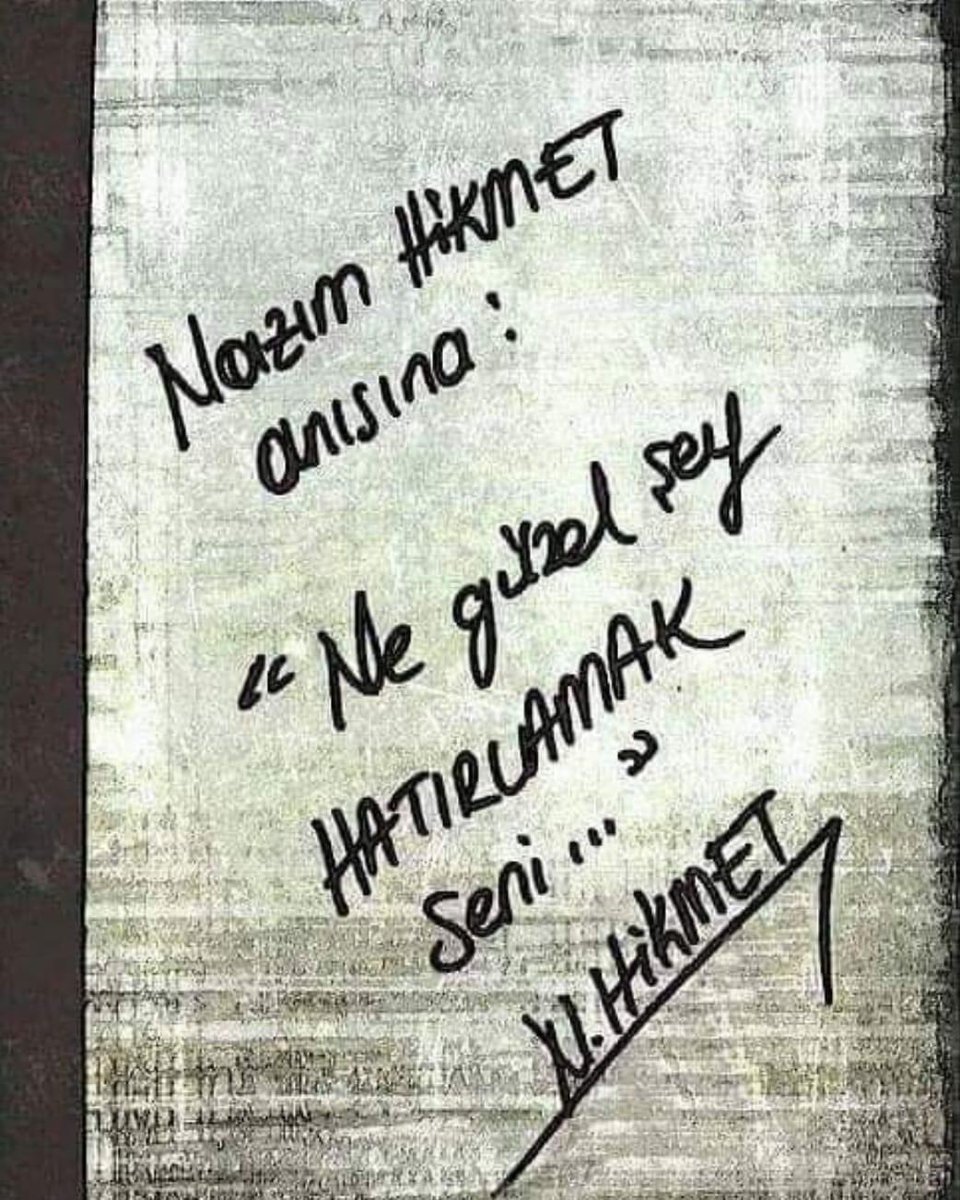 Nazım HiKMET
anısına :
“ Ne güzel şey
HATIRLAMAK
Seni... ”
N. HiKMET